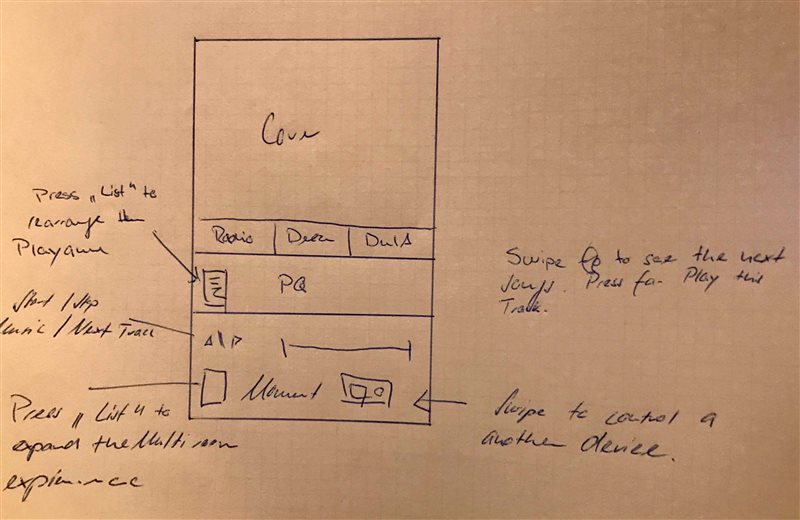 Cover
Press „List" to
rearrange the
Playqueue
Radio
PQ
Swipe Up to see the next
songs. Press for Play this
Track.
Start / Stop
Music / Next Track
Moment
Press „List" to
expand the Multiroom
experience
Swipe to control a
another device.